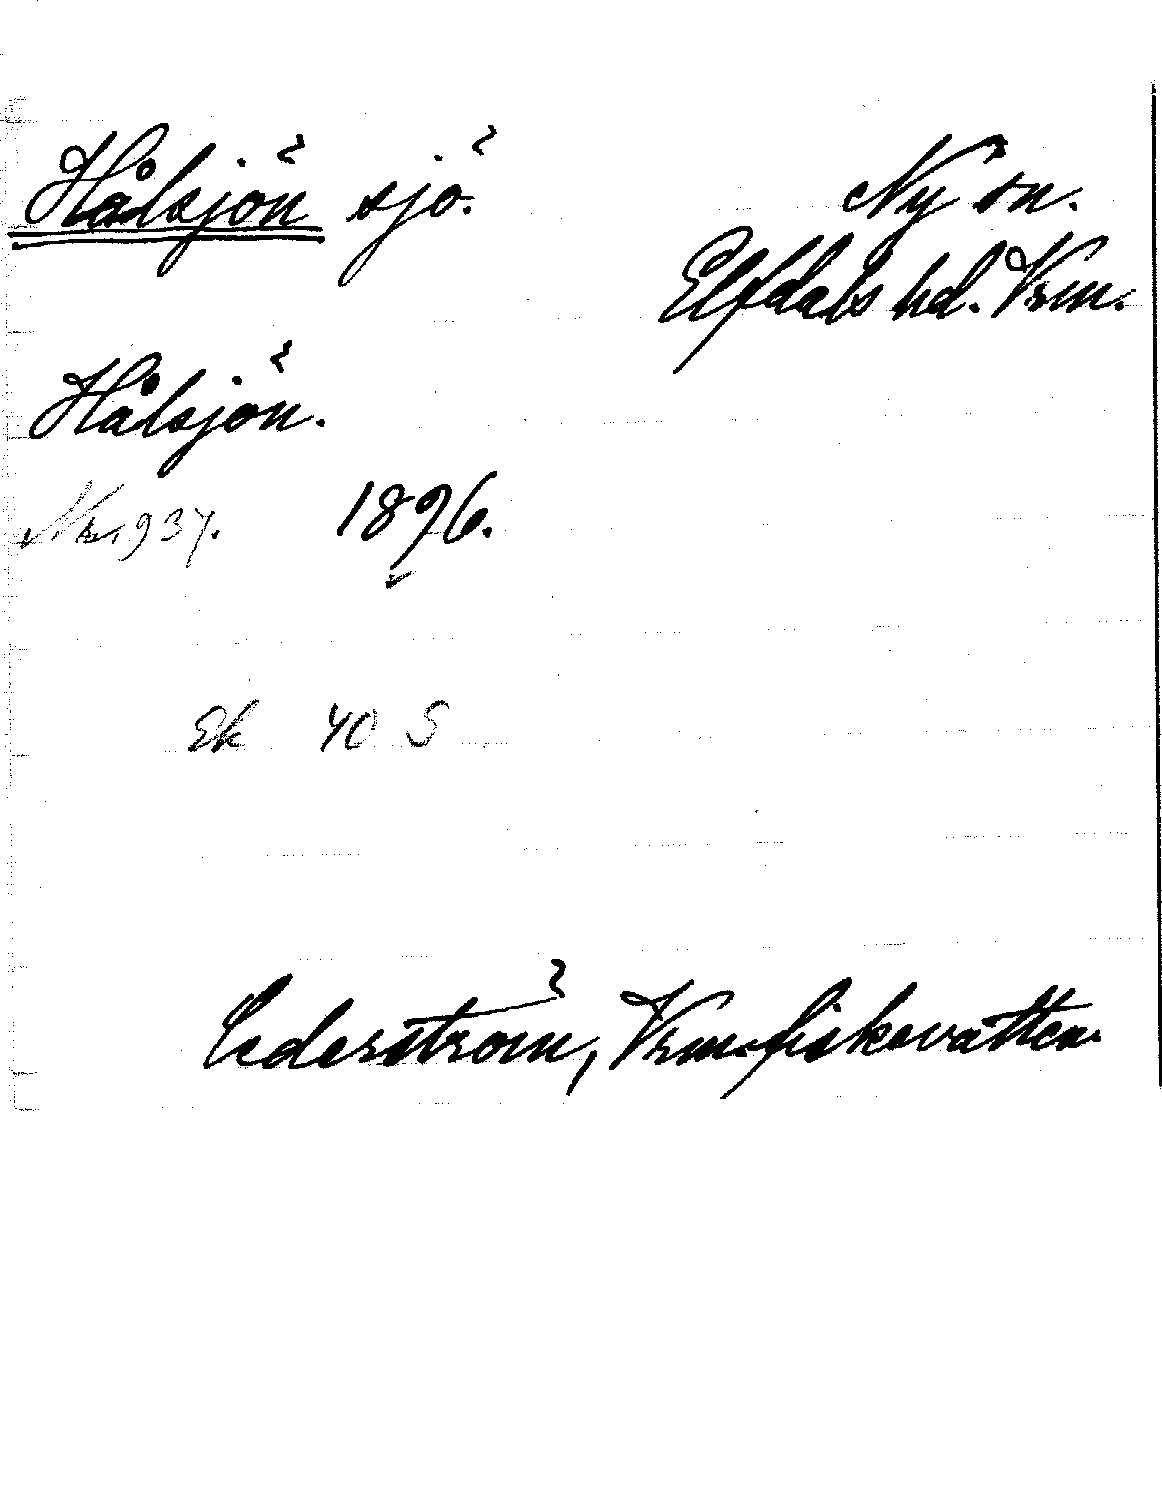 Hålsjön sjö. Ny sn.
Elfdals hd. Vrm.
Hålsjön.
Nr. 937. 1896.
Ek 40 S
Cederström, Vrm. fiskevatten.